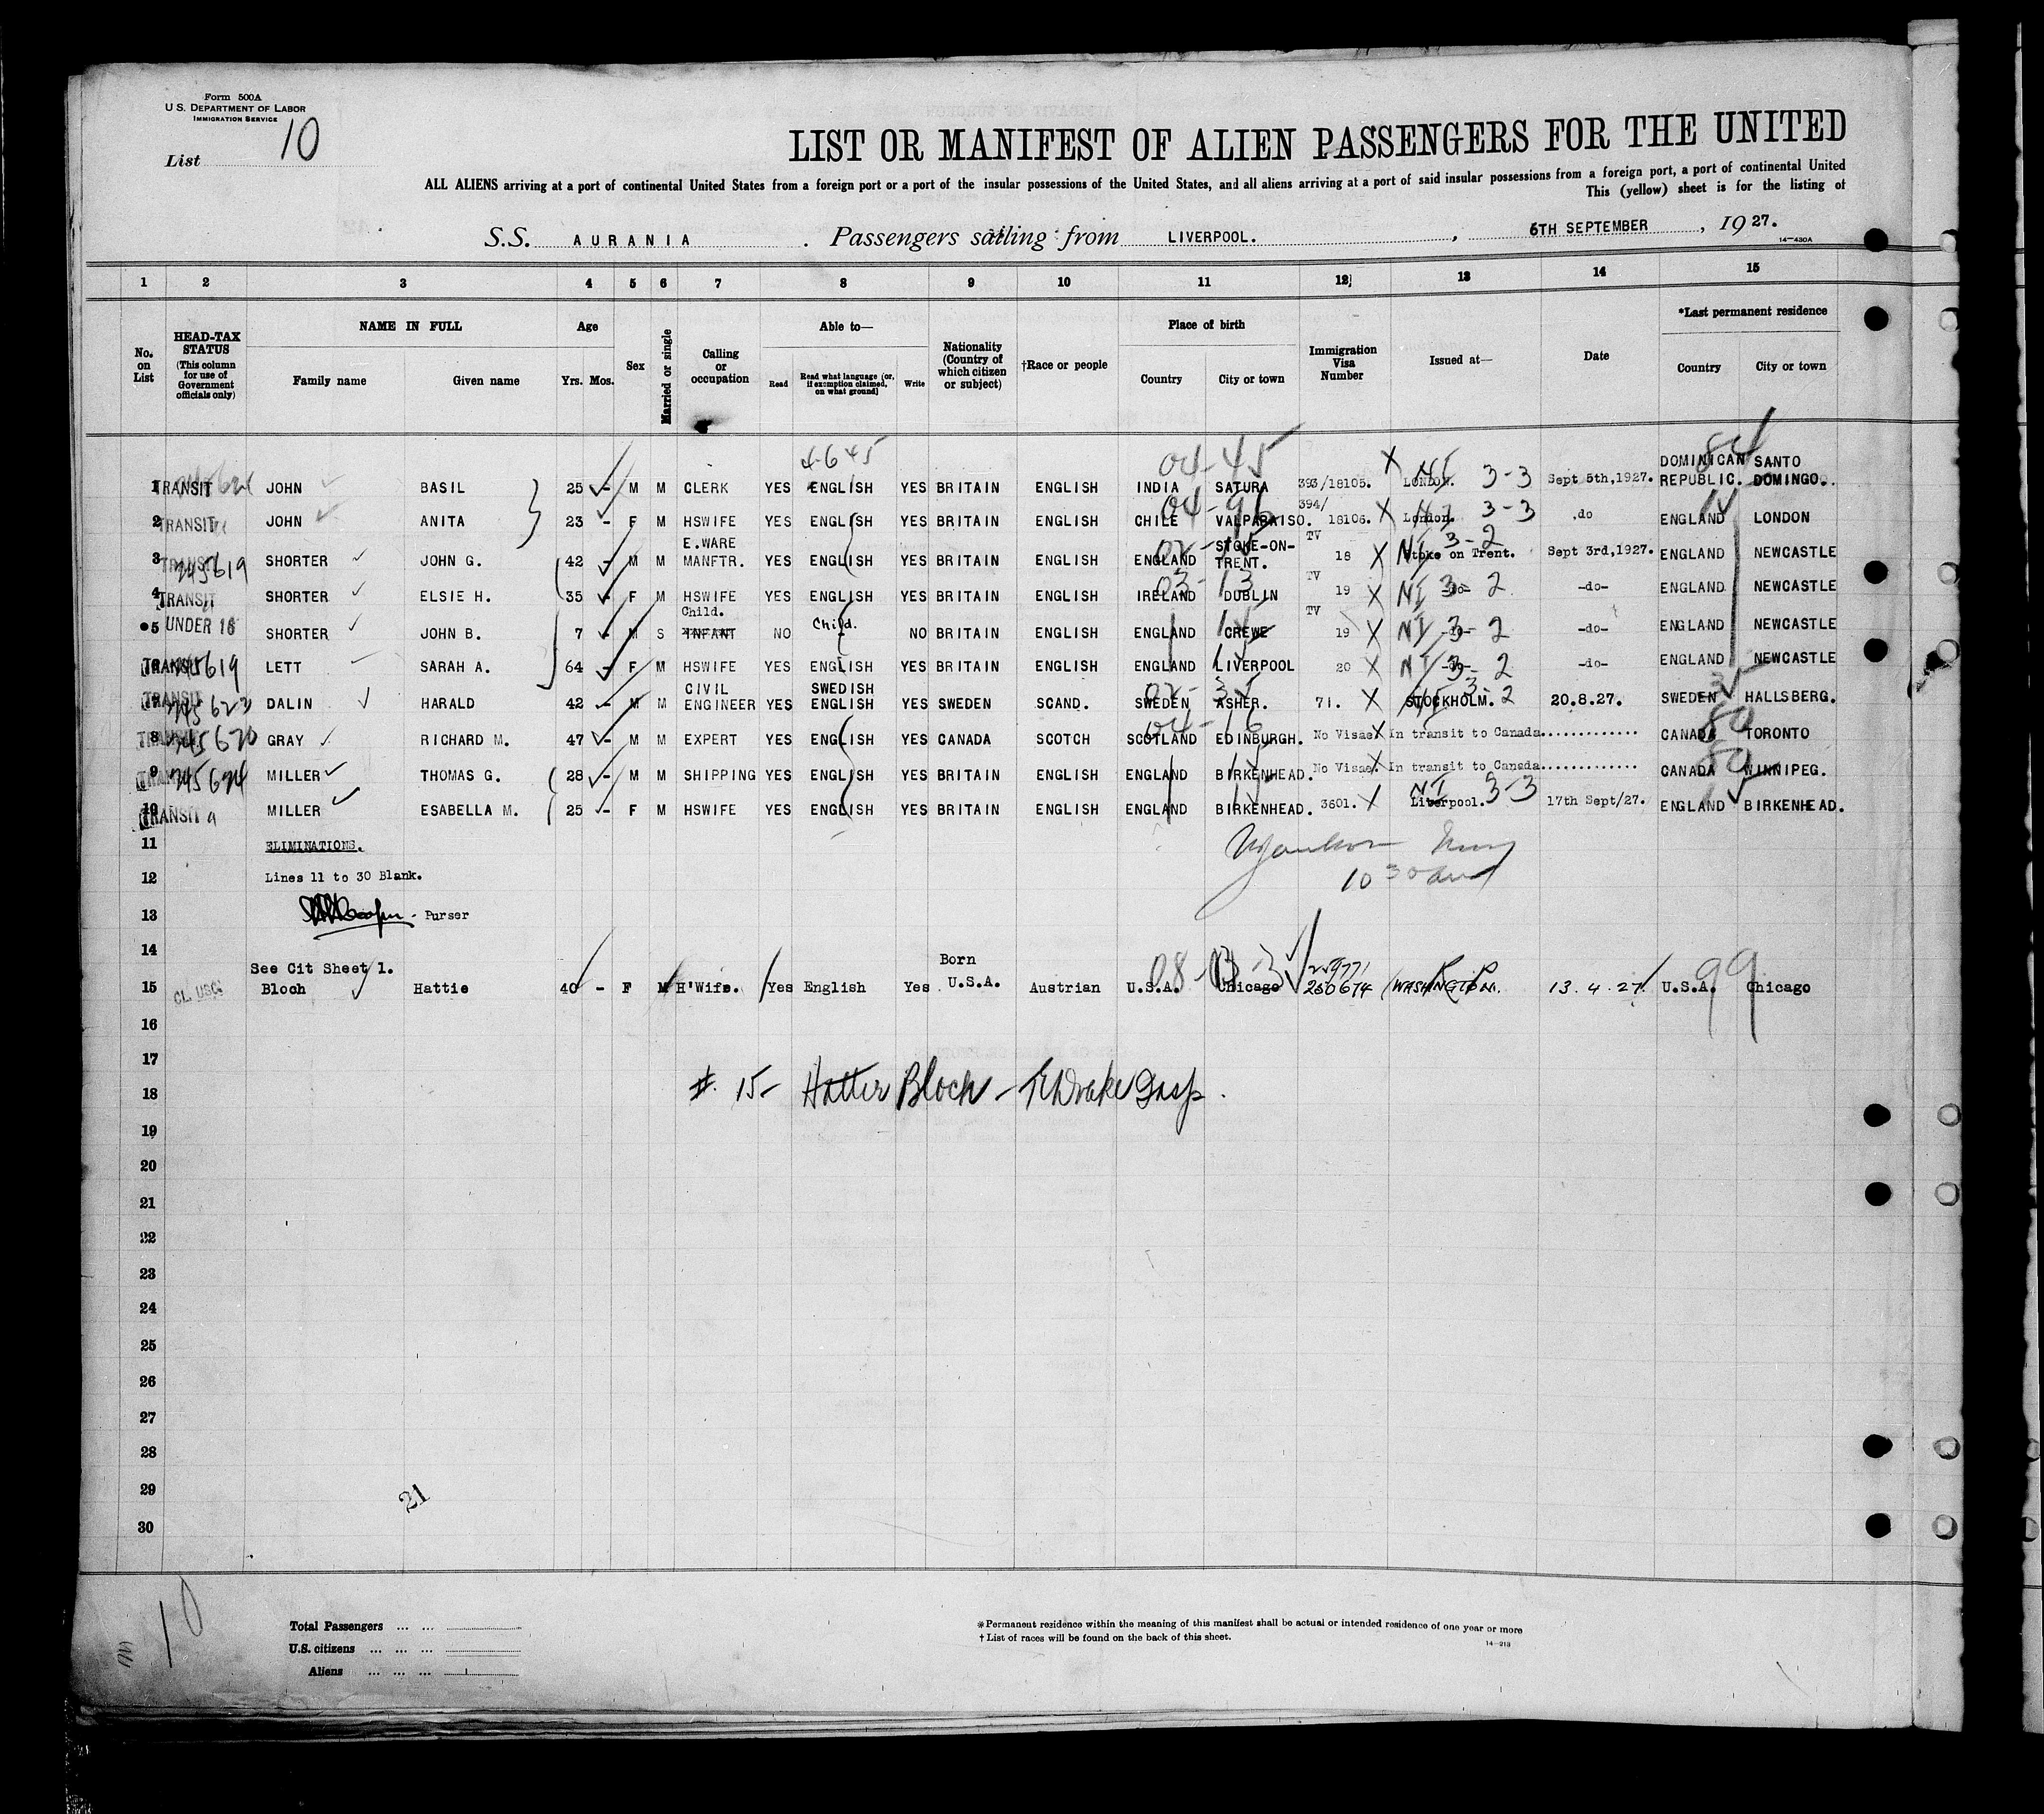 Form 500A
U.S. DEPARTMENT OF LABOR
IMMIGRATION SERVICE
List 10
LIST OR MANIFEST OF ALIEN PASSENGERS FOR THE UNITED
ALL ALIENS arriving at a port of continental United States from a foreign port or a port of the insular possessions of the United States, and all aliens arriving at a port of said insular possessions from a foreign port, a port of continental United
This (yellow) sheet is for the listing of
S.S. AURANIA. Passengers sailing from LIVERPOOL. , 6TH SEPTEMBER , 1927.
14-430A
1 2 3 4 5 6 7 8 9 10 11 12 13 14 15
No. on List
HEAD-TAX STATUS (This column for use of Government officials only)
NAME IN FULL
Family name Given name
Age
Yrs. Mos.
Sex
Married or single
Calling or occupation
Able to—
Read Read what language (or, if exemption claimed, on what ground) Write
Nationality (Country of which citizen or subject)
†Race or people
Place of birth
Country City or town
Immigration Visa Number
Issued at—
Date
*Last permanent residence
Country City or town
4-645 04-45 84
1 TRANSIT JOHN BASIL 25 - M M CLERK YES ENGLISH YES BRITAIN ENGLISH INDIA SATURA 393/18105. X LONDON. NI 3-3 Sept 5th,1927. DOMINICAN REPUBLIC. SANTO DOMINGO.
04-96
2 TRANSIT JOHN ANITA 23 - F M HSWIFE YES ENGLISH YES BRITAIN ENGLISH CHILE VALPARAISO. 394/18106. X London. 3-3 .do ENGLAND LONDON
3 TRANSIT 245619 SHORTER JOHN G. 42 - M M E.WARE MANFTR. YES ENGLISH YES BRITAIN ENGLISH ENGLAND STOKE-ON-TRENT. TV 18 X Stoke on Trent. NI 3-2 Sept 3rd,1927. ENGLAND NEWCASTLE
03-13
4 TRANSIT SHORTER ELSIE H. 35 - F M HSWIFE YES ENGLISH YES BRITAIN ENGLISH IRELAND DUBLIN TV 19 X NI 3-2 -do- ENGLAND NEWCASTLE
5 UNDER 16 SHORTER JOHN B. 7 - M S Child. INFANT NO Child. NO BRITAIN ENGLISH ENGLAND CREWE TV 19 X NI 3-2 -do- ENGLAND NEWCASTLE
6 TRANSIT 245619 LETT SARAH A. 64 - F M HSWIFE YES ENGLISH YES BRITAIN ENGLISH ENGLAND LIVERPOOL 20 X NI 3-2 -do- ENGLAND NEWCASTLE
7 TRANSIT 245623 DALIN HARALD 42 - M M CIVIL ENGINEER YES SWEDISH ENGLISH YES SWEDEN SCAND. SWEDEN ASHER. 71. X STOCKHOLM. 3-2 20.8.27. SWEDEN HALLSBERG.
04-16 80
8 TRANSIT 245620 GRAY RICHARD M. 47 - M M EXPERT YES ENGLISH YES CANADA SCOTCH SCOTLAND EDINBURGH. No Visae. X In transit to Canada............. CANADA TORONTO
80
9 TRANSIT 245624 MILLER THOMAS G. 28 - M M SHIPPING YES ENGLISH YES BRITAIN ENGLISH ENGLAND BIRKENHEAD. No Visae. X In transit to Canada............. CANADA WINNIPEG.
10 TRANSIT MILLER ESABELLA M. 25 - F M HSWIFE YES ENGLISH YES BRITAIN ENGLISH ENGLAND BIRKENHEAD. 3601. X Liverpool. NI 3-3 17th Sept/27. ENGLAND BIRKENHEAD.
11 ELIMINATIONS.
12 Lines 11 to 30 Blank.
13 Purser
14
See Cit Sheet 1.
15 CL. USC. Bloch Hattie 40 - F M H'Wife. Yes English Yes Born U.S.A. Austrian U.S.A. Chicago 250674 WASHINGTON. 13.4.27. U.S.A. 99 Chicago
16
17
18 #. 15- Hattie Bloch - Insp.
19
20
21
22
23
24
25
26
27
28
29
21
30
10
Total Passengers ... ...
U.S. citizens ... ... ...
Aliens ... ... ...
*Permanent residence within the meaning of this manifest shall be actual or intended residence of one year or more
†List of races will be found on the back of this sheet.
14-213